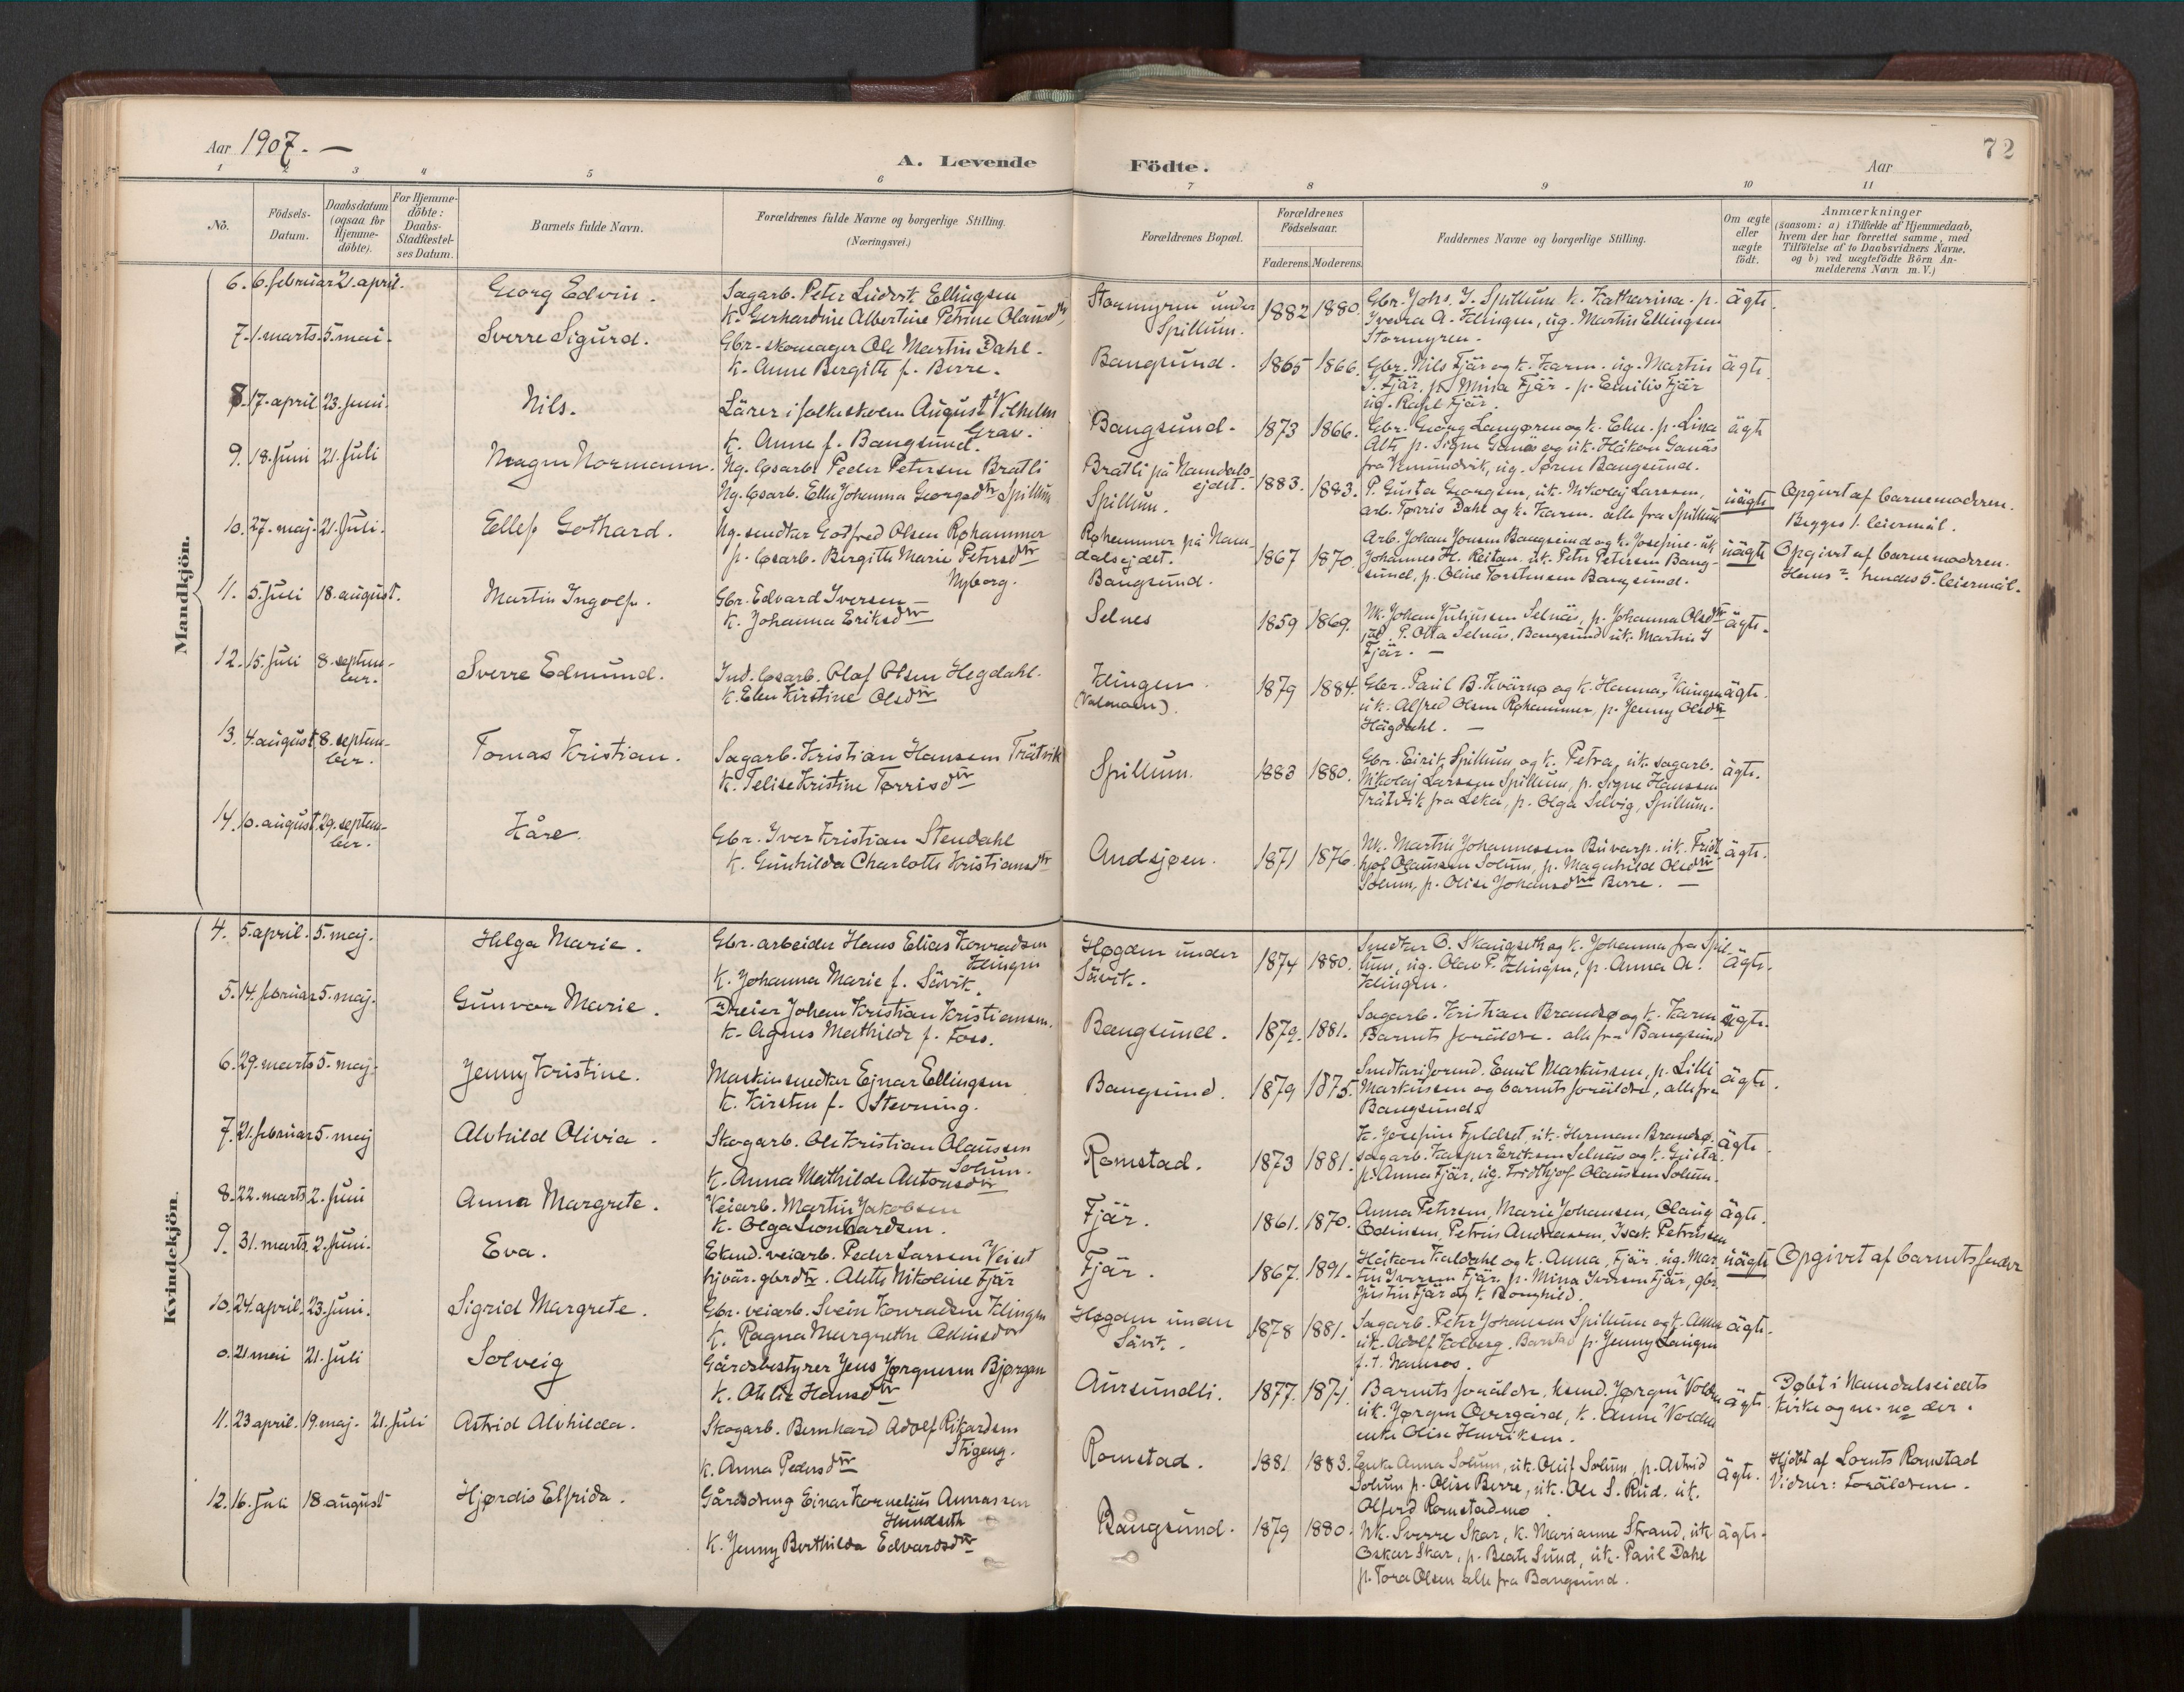 Aar 1907. —
A. Levende Födte.
Aar
72
1 2 3 4 5 6 7 8 9 10 11
No.
Födsels-Datum.
Daabsdatum (ogsaa for Hjemme-döbte).
For Hjemme-döbte: Daabs-Stadfæstel-ses Datum.
Barnets fulde Navn.
Forældrenes fulde Navne og borgerlige Stilling.
(Næringsvei.)
Forældrenes Bopæl.
Forældrenes Födselsaar.
Faderens. Moderens.
Faddernes Navne og borgerlige Stilling.
Om ægte eller uægte födt.
Anmærkninger
(saasom: a) i Tilfælde af Hjemmedaab, hvem der har forrettet samme, med Tilföielse af to Daabsvidners Navne, og b) ved uægtefödte Börn Anmelderens Navn m. V.)
Mandkjön.
6. 6. februar 21. april. Georg Edvin. Sagarb. Peter Ludvik Ellingsen
K. Gerhardine Albertine Petrine Olausdtr
Stormyren under Spillum. 1882 1880. Gbr. Johs. J. Spillum k. Katharina. p. ägte.
Ivera A. Klingen, ug. Martin Ellingsen
Stormyren.
7. 1. marts. 5. mai. Sverre Sigurd. Gbr. skomager Ole Martin Dahl.
K. Anne Bergitte f. Berre.
Bangsund. 1865 1866. Gbr. Nils Fjär og k. Karen. ug. Martin ägte.
J. Fjär, p. Mina Fjär. p. Emilie Fjär
ug. Karl Fjär.
8. 17. april 23. juni. Nils. Lärer i folkeskolen August Vilhelm Grav.
K. Anne f. Bangsund.
Bangsund. 1873 1866. Gbr. Georg Langøren og k. Elen. p. Lina ägte
Alte, p. Signe Ganäs og uk. Håkon Ganäs
fra Vemundvik, ug. Søren Bangsund.
9. 18. juni 21. juli Magne Normann. Ng. løsarb. Peder Petersen Bratli
Ng. løsarb. Elen Johanna Georgsdtr Spillum
Bratli på Namdalsejdet. Spillum. 1883. 1883. P. Gusta Georgsen, uk. Nikolaj Larssen,
arb. Tørris Dahl og k. Karen. alle fra Spillum
uägte Opgivet af barnemoderen.
Begges 1. leiermål.
10. 27. maj. 21. juli. Ellef Gothard. Ng. snedker Gotfred Olsen Røhammer
p. løsarb. Bergitte Marie Petersdtr Nyborg.
Røhammer på Namdalsejdet. Bangsund. 1867 1870. Arb. Johan Jonsen Bangsund og k. Josefine. uk
Johannes H. Reitan. uk. Peter Petersen Bangsund, p. Oline Torstensen Bangsund.
uägte Opgivet af barnemoderen.
Hans 2. hendes 5. leiermål.
11. 5. juli 18. august. Martin Ingolf. Gbr. Edvard Iversen
K. Johanna Eriksdtr
Selnes 1859 1869. Nk. Johan Juliussen Selnäs, p. Johanna Olsdtr ägte.
P. Olta Selnäs, Bangsund uk. Martin J
Fjär. —
12. 15. juli 8. september. Sverre Edmund. Ind. løsarb. Olaf Olsen Hegdahl.
K. Elen Kirstine Olsdtr
Klingen. 1879 1884. Gbr. Paul B. Kvärnø og k. Hanna, Klingen ägte.
uk. Alfred Olsen Røhammer, p. Jenny Olsdtr
Hägdahl. —
13. 4. august 8. september. Tomas Kristian. Sagarb. Kristian Hansen Trätvik
K. Telise Kristine Tørrisdtr
Spillum. 1883 1880. Gbr. Eirik Spillum og k. Petra, uk. sagarb. ägte.
Nikolaj Larssen Spillum, p. Signe Hanssen
Trätvik fra Leka, p. Olga Selvig, Spillum.
14. 10. august 29. september. Kåre. Gbr. Iver Kristian Stendahl
K. Gunhilda Charlotte Kristiansdtr
Andsjøen. 1871 1876. Nk. Martin Johannessen Buvarp. uk. Fridthjof ägte.
Olaussen Solum, p. Magnhilde Olsdtr
Solum, p. Olise Johansdtr Berre. —
Kvindekjön.
4. 5. april. 5. maj. Helga Marie. Gbr. arbeider Hans Elias Konradsen Klingen
K. Johanna Marie f. Sävik.
Høgden under Sävik. 1874 1880. Snedker O. Skaugseth og k. Johanna fra Spillum, ägte.
ug. Olav P. Klingen, p. Anna A.
Klingen.
5. 14. februar 5. maj. Gunvor Marie. Dreier Johan Kristian Kristiansen.
K. Agnes Mathilde f. Foss.
Bangsund. 1879. 1881. Sagarb. Kristian Brandsø og k. Karen ägte.
Barnets foräldre. alle fra Bangsund
6. 29. marts 5. maj. Jenny Kristine. Maskinsnedker Ejnar Ellingsen
K. Kirsten f. Stevning.
Bangsund. 1879 1875. Snedkeriforend. Emil Markussen, p. Lilli ägte.
Markussen og barnets foräldre, alle fra
Bangsund.
7. 21. februar 5. maj Alvhild Olivia. Skogarb. Ole Kristian Olaussen Solum.
K. Anna Mathilde Antonsdtr
Romstad. 1873 1881. K. Josefine Fjeldset, uk. Herman Brandsø. ägte.
sagarb. Kasper Eriksen Selnäs og k. Gusta.
p. Anna Fjär, ug. Fridthjof Olaussen Solum.
8. 22. marts 2. juni Anna Margrete. Veiarb. Martin Jakobsen
K. Olga Leonhardsen.
Fjär. 1861. 1870. Anna Petersen, Marie Johansen, Olaug ägte.
Edinsen, Petrus Andreasen, Isak Petersen
9. 31. marts. 2. juni. Eva. Ekmd. veiarb. Peder Larssen Veiset
hjvär. gbrdtr. Alette Nikoline Fjär
Fjär. 1867. 1891. Håkon Kaldahl og k. Anna, Fjär. ug. Martin
Iversen Fjär. p. Mina Iversen Fjär, gbr.
Justin Fjär og k. Ronghild.
uägte Opgivet af barnets fader
10. 24. april. 23. juni. Sigrid Margrete. Gbr. veiarb. Svein Konradsen Klingen
K. Ragna Margrethe Edinsdtr
Høgden under Sävik. 1878 1881. Sagarb. Peter Johansen Spillum og k. Anna ägte.
uk. Adolf Kolberg, p. Jenny Lauigen
f. t. Namsos.
0. 21 mai 21. juli Solveig Gårdsbestyrer Jens Jørgensen Bjørgan
K. Otelie Hansdtr
Aursundli. 1877. 1871. Barnets foräldre, kmd. Jørgen Volden ägte
uk. Jørgen Overgård, k. Anne Volden
enke Olise Henriksen.
Døbt i Namdalseidets
kirke og ne. no der.
11. 23 april. 19. maj. 21. juli Astrid Alvhilda. Skogarb. Bernhard Adolf Rikardsen Stigeng.
K. Anna Pedersdtr
Romstad. 1881 1883. Enke Anna Solum, uk. Oluf Solum, p. Astrid ägte.
Solum p. Olise Berre, uk. Ole S. Rud. uk.
Olferd Romstadmo
Hjdbt af Lornts Romstad
Vidner: Foräldrene.
12. 16. juli 18. august Hjørdis Elfrida. Gårdsdreng Einar Kornelius Annassen Hundseth
K. Jenny Berthilda Edvardsdtr
Bangsund. 1879 1880. Nk. Sverre Skar, k. Marianne Strand, uk. ägte.
Oskar Skar, p. Beate Sund, uk. Paul Dahl
p. Tora Olsen alle fra Bangsund.